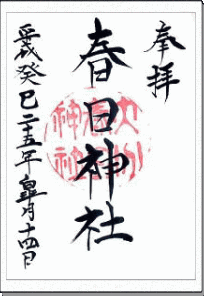 奉拝
春日神社
平成癸巳二十五年皐月十四日